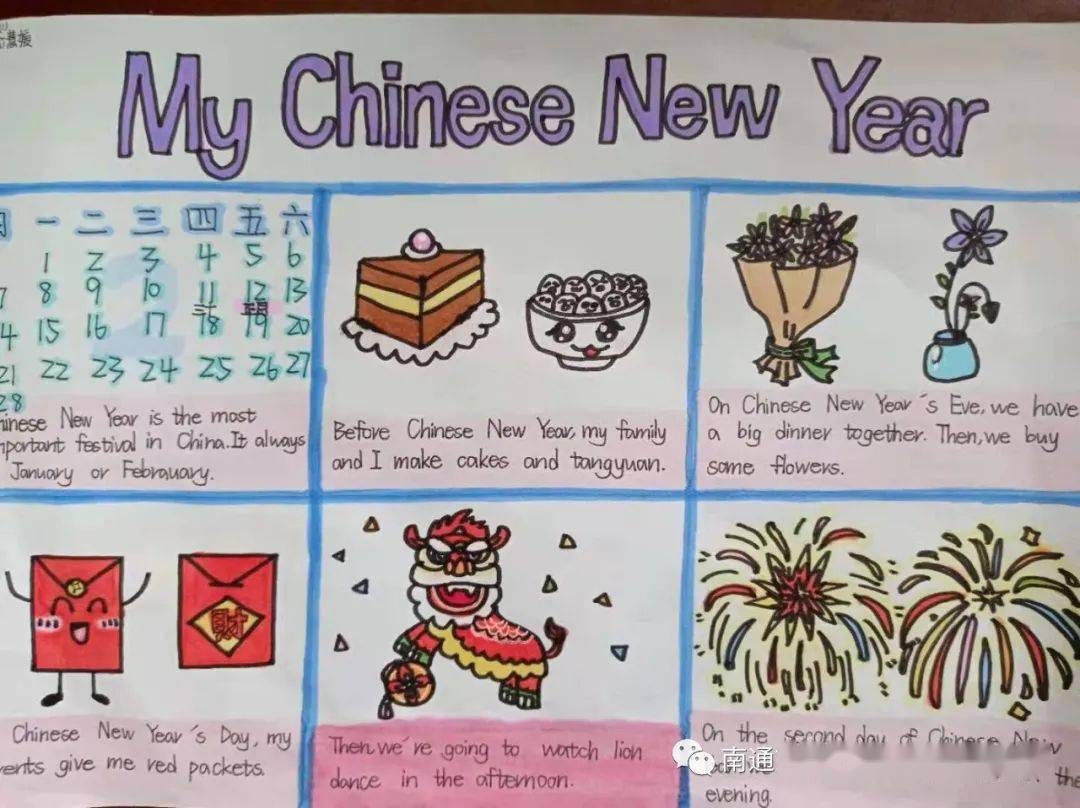 My Chinese New Year
日 一 二 三 四 五 六
1 2 3 4 5 6
7 8 9 10 11 12 13
4 15 16 17 18 19 20
21 22 23 24 25 26 27
28
hinese New Year is the most
mportant festival in China. It always
January or Febrauary.
Before Chinese New Year, my family
and I make cakes and tangyuan.
On Chinese New Year's Eve, we have
a big dinner together. Then, we buy
some flowers.
財
Chinese New Year's Day, my
rents give me red packets.
Then, we're going to watch lion
dance in the afternoon.
On the second day of Chinese New
the
evening.
南通